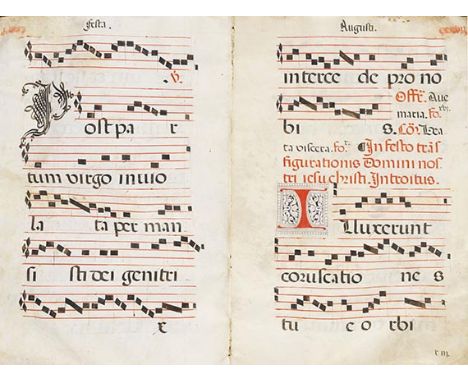 Festa.
V.
Post pa r
tum virgo invio
la ta per man
si sti dei genitri
x
Augusti.
interce de pro no
Offē. Aue
maria. fo.
bi s. Cō. Bea
ta viscera. fo. In festo trās
figurationis Domini nos
tri iesu christi. Introitus.
Illuxerunt
coruscatio ne s
tu e orbi